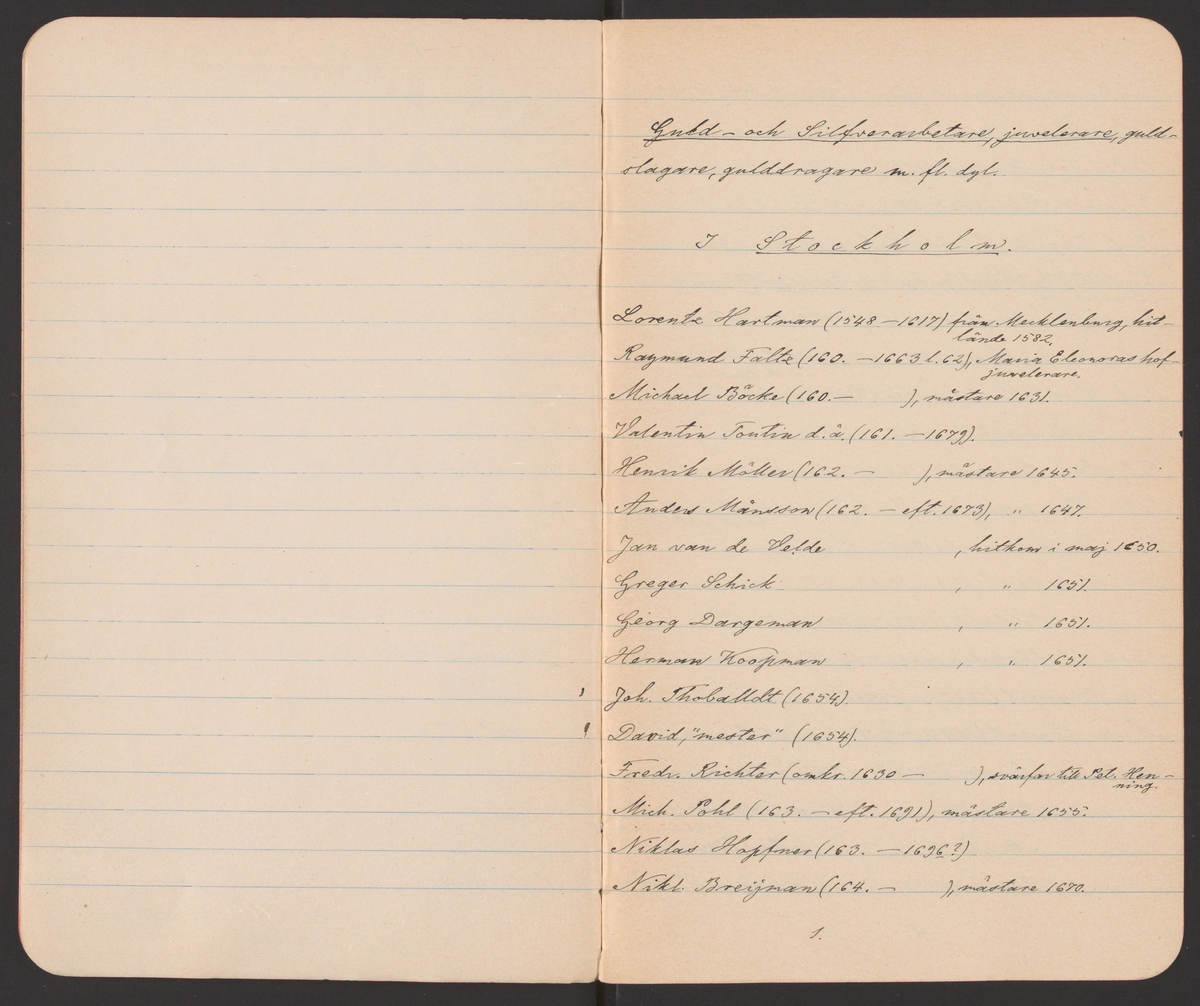 Guld- och Silfverarbetare, juvelerare, guld-
slagare, gulddragare m. fl. dyl.
I Stockholm.
Lorentz Hartman (1548 — 1617) från Mecklenburg, hit-
lände 1582.
Raymund Faltz (160. — 1663 l. 62), Maria Eleonoras hof-
juvelerare.
Michael Böcke (160. — ), mästare 1631.
Valentin Toutin d.ä. (161. — 1679).
Henrik Möller (162. — ), mästare 1645.
Anders Månsson (162. — eft. 1673), " 1647.
Jan van de Velde , hitkom i maj 1650.
Greger Schick , " 1651.
Georg Dargeman , " 1651.
Herman Koopman , " 1651.
Joh. Thoballdt (1654).
David, "mester" (1654).
Fredr. Richter (omkr. 1630 — ), svärfar till Pet. Hen-
ning.
Mich. Pohl (163. — eft. 1691), mästare 1655.
Niklas Hopfner (163. — 1696?)
Nikl. Breijman (164. — ), mästare 1670.
1.